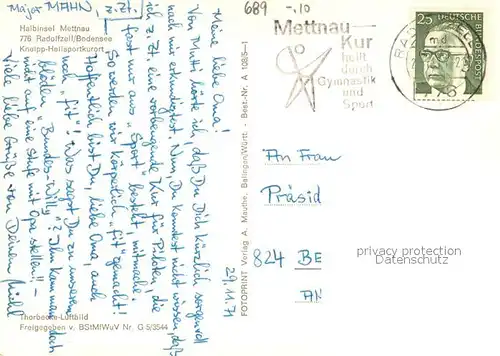 Major MAHN, z.Zt.
Halbinsel Mettnau
776 Radolfzell/Bodensee
Kneipp-Heilsportkurort
689
-.10
Mettnau
Kur
heilt
durch
Gymnastik
und
Sport
25
DEUTSCHE BUNDESPOST
md
776
29.11.71
Meine liebe Oma!
Von Mutti hörte ich, daß Du Dich kürzlich sorgenvoll
nach mir erkundigtest. Nun, Du konntest nicht wissen, daß
ich z. Zt. eine vorbeugende Kur für Piloten, die
fast nur aus „Sport" besteht, mitmache.
So werden wir körperlich „fit" gemacht!
Hoffentlich bist Du, liebe Oma, auch
noch „fit"! Was sagst Du zu unserem
blöden „Bundes-Willy"? Ihn kann man doch
nicht auf eine Stufe mit Opa stellen!! –
Viele liebe Grüße von Deinem
FOTOPRINT Verlag A. Mauthe, Balingen/Württ. - Best.-Nr. A 108/5—1
An Frau
Präsid
824 BE
privacy protection
Datenschutz
Thorbecke-Luftbild
Freigegeben v. BStMIWuV Nr. G 5/3544